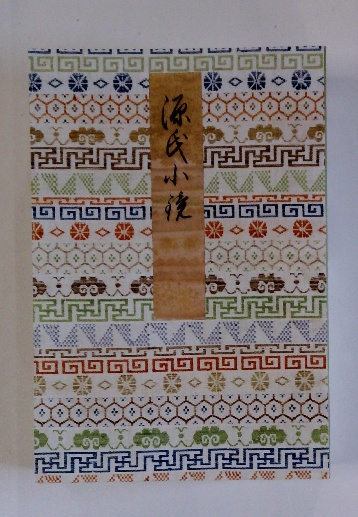 源氏小鏡